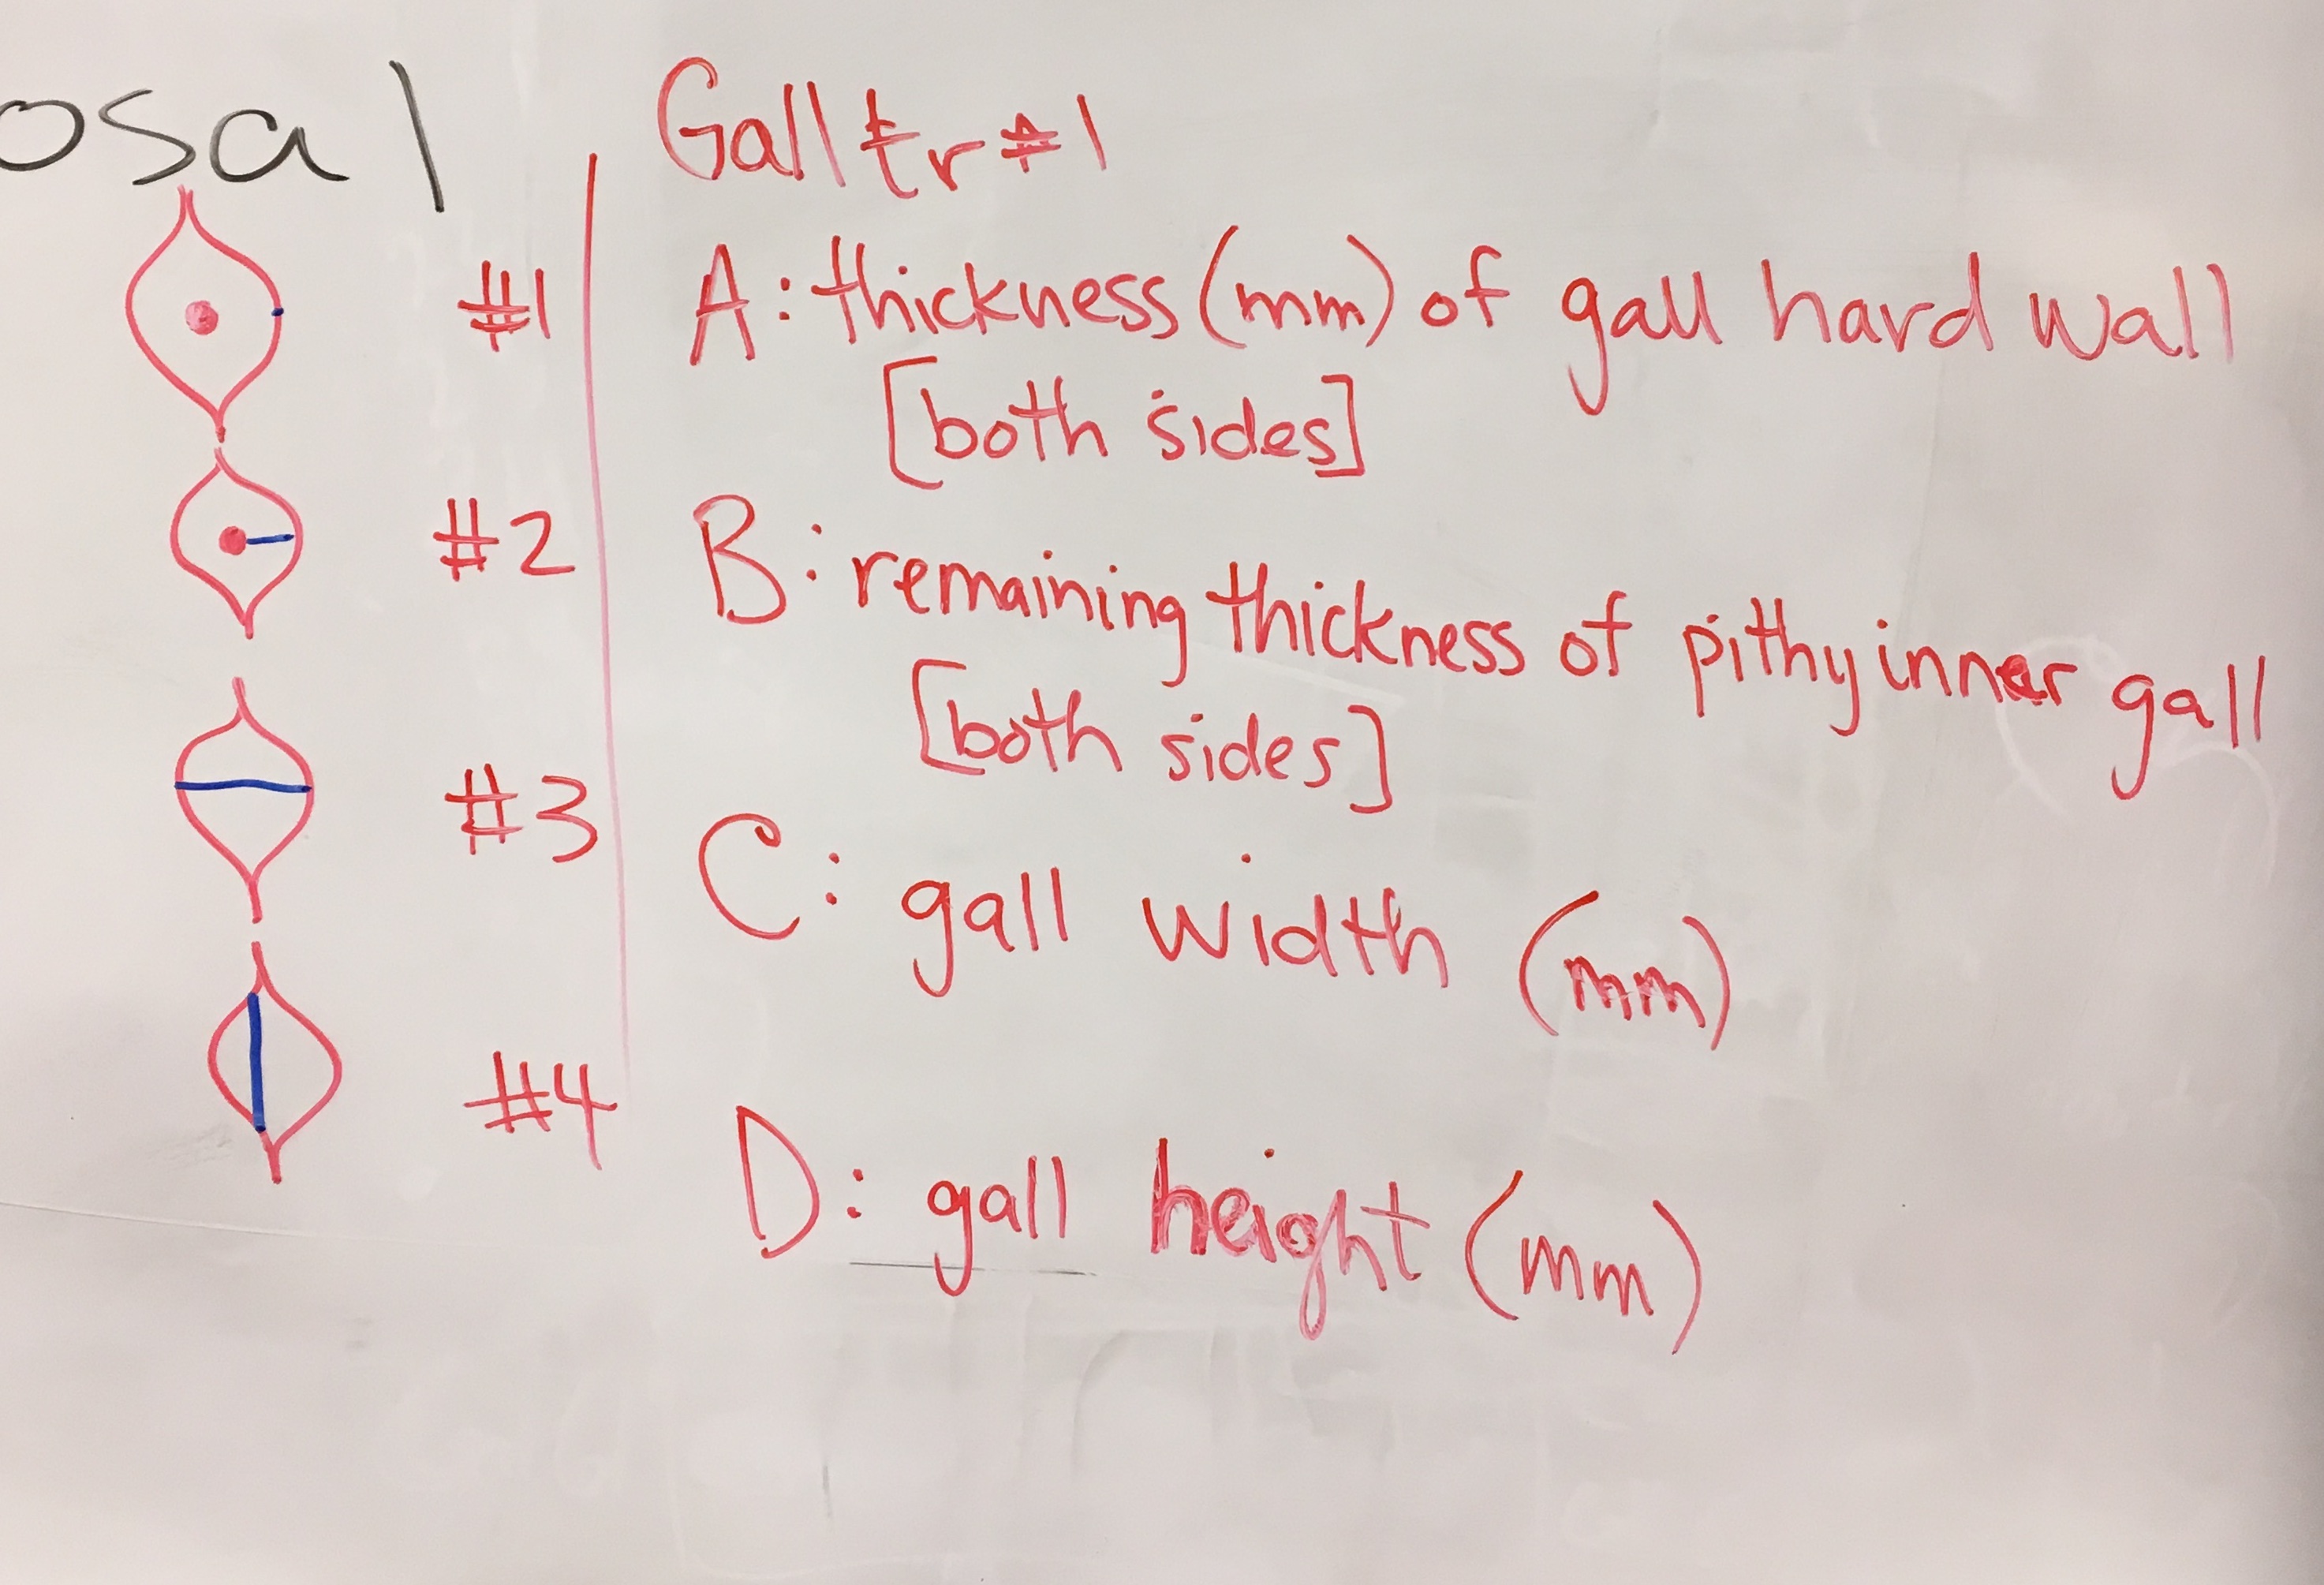 osal
Gall tr #1
#1
A: thickness (mm) of gall hard wall
[both sides]
#2
B: remaining thickness of pithy inner gall
[both sides]
#3
C: gall width (mm)
#4
D: gall height (mm)